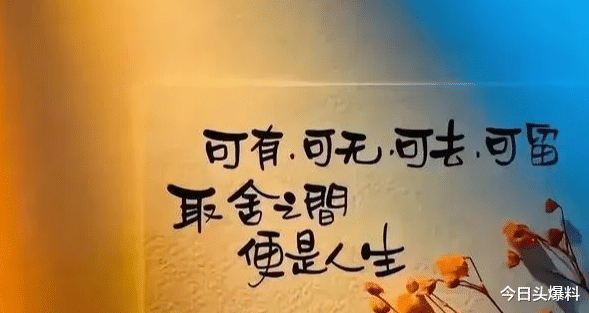 可有.可无.可去.可留
取舍之間
便是人生
今日头爆料